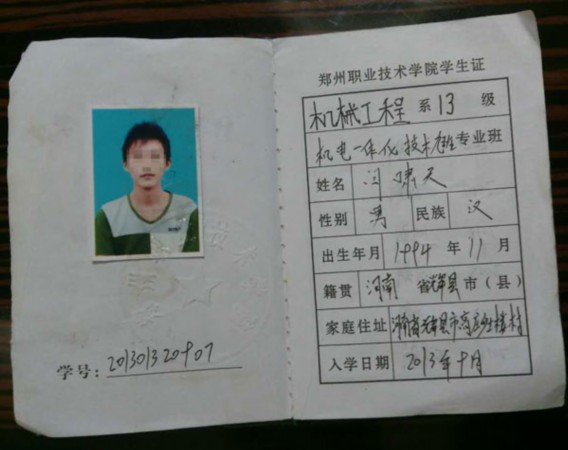 学号: 201301320907
郑州职业技术学院学生证
机械工程 系 13 级
机电一体化技术 专业班
姓名 闫啸天
性别 男 民族 汉
出生年月 1994 年 11 月
籍贯 河南 省 辉县 市(县)
家庭住址 河南省辉县市高庄乡 村
入学日期 2013年9月